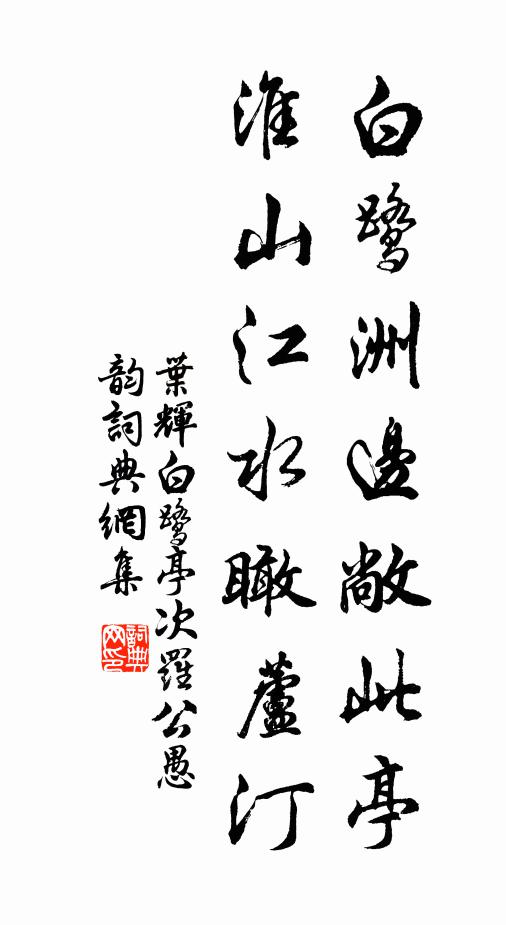 白鹭洲邊敞此亭
淮山江水瞰蘆汀
葉輝白鹭亭次羅公愚
韵詞典網集
詞典網印